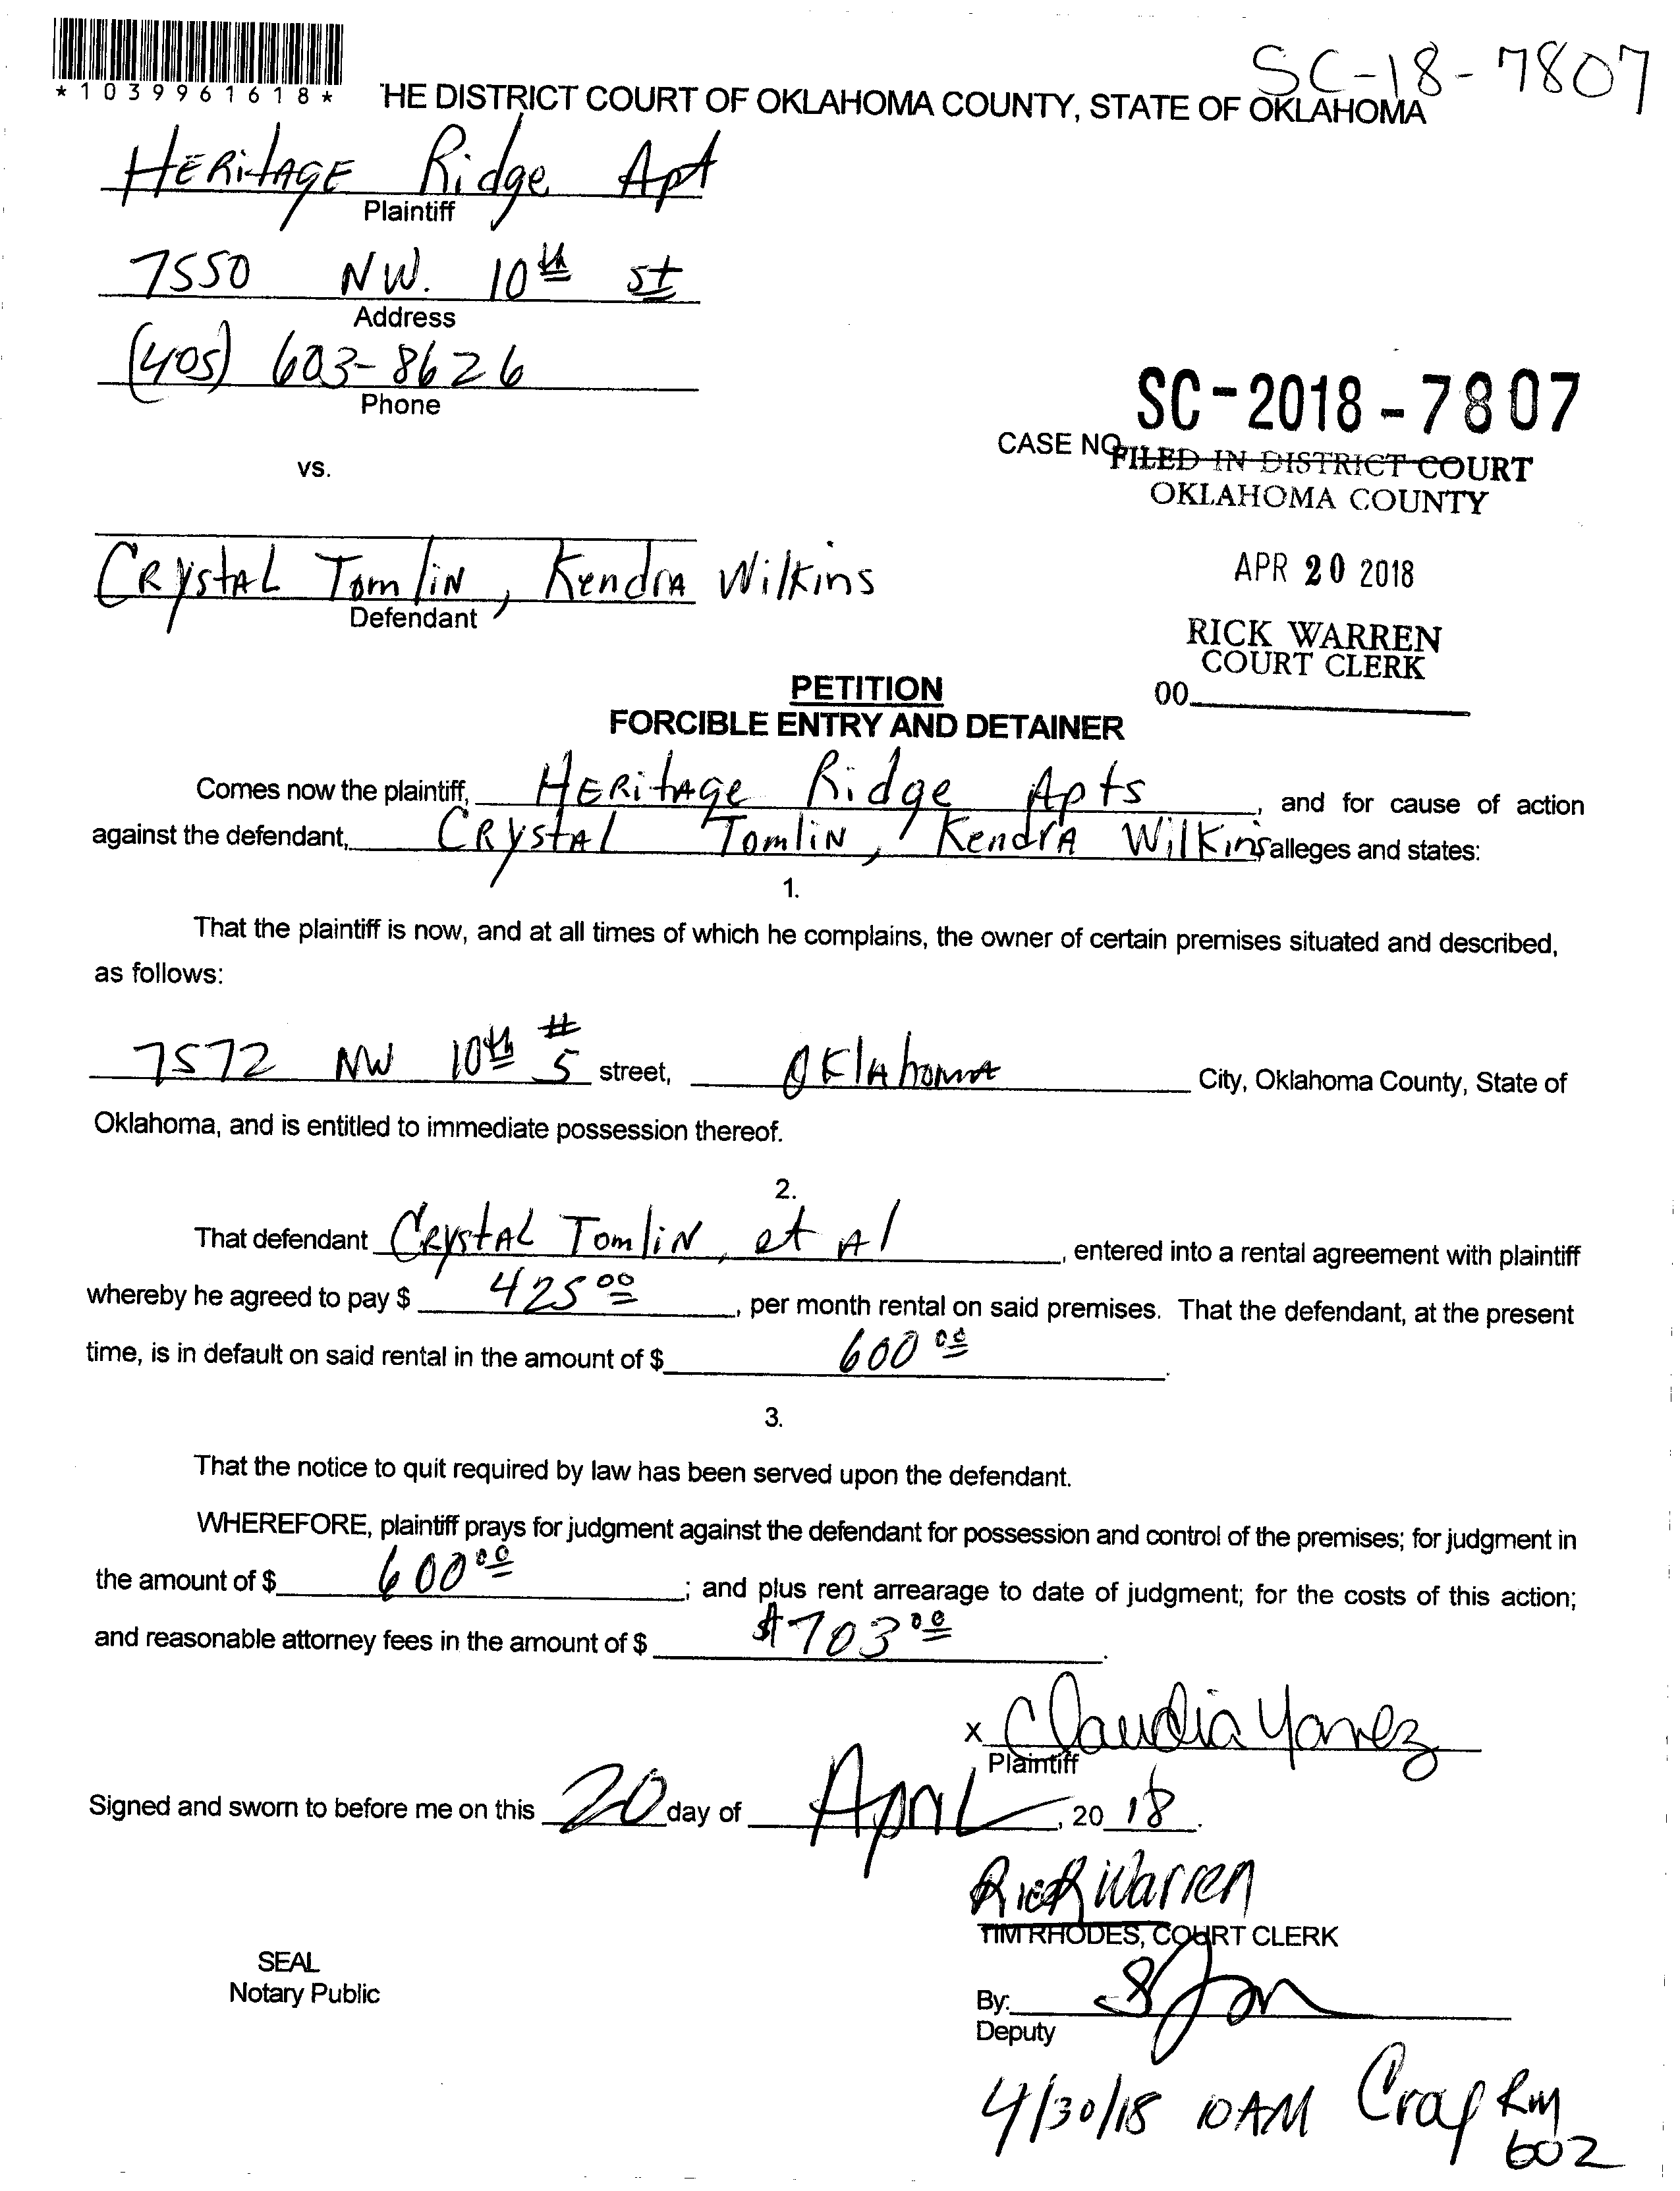 SC-18-7807
*1039961618*
HE DISTRICT COURT OF OKLAHOMA COUNTY, STATE OF OKLAHOMA
HERitAGE Ridge Apt
Plaintiff
7550 NW. 10th st
Address
(405) 603-8626
Phone
SC-2018-7807
CASE NO.
FILED IN DISTRICT COURT
OKLAHOMA COUNTY
vs.
APR 20 2018
CRystAL TomliN, KendrA Wilkins
Defendant
RICK WARREN
COURT CLERK
00
PETITION
FORCIBLE ENTRY AND DETAINER
Comes now the plaintiff, HERitAge Ridge Apts, and for cause of action
against the defendant, CRystAl TomliN, KendrA WilKins alleges and states:
1.
That the plaintiff is now, and at all times of which he complains, the owner of certain premises situated and described,
as follows:
7572 NW 10th # 5 street, OKlAhomA City, Oklahoma County, State of
Oklahoma, and is entitled to immediate possession thereof.
2.
That defendant CRystAL TomliN, et Al, entered into a rental agreement with plaintiff
whereby he agreed to pay $ 425 00, per month rental on said premises. That the defendant, at the present
time, is in default on said rental in the amount of $ 600 00.
3.
That the notice to quit required by law has been served upon the defendant.
WHEREFORE, plaintiff prays for judgment against the defendant for possession and control of the premises; for judgment in
the amount of $ 600 00; and plus rent arrearage to date of judgment; for the costs of this action;
and reasonable attorney fees in the amount of $ $703 00.
x Claudia Yanez
Plaintiff
Signed and sworn to before me on this 20 day of ApriL, 20 18.
Rick Warren
TIM RHODES, COURT CLERK
SEAL
Notary Public
By:
Deputy
4/30/18 10 AM Rm
602